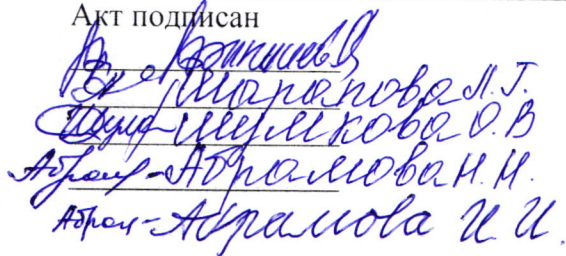 Акт подписан
Шарапова Л. Г.
Шумкова О. В
Абрам - Абрамова Н. Н.
Абрам - Абрамова И И.